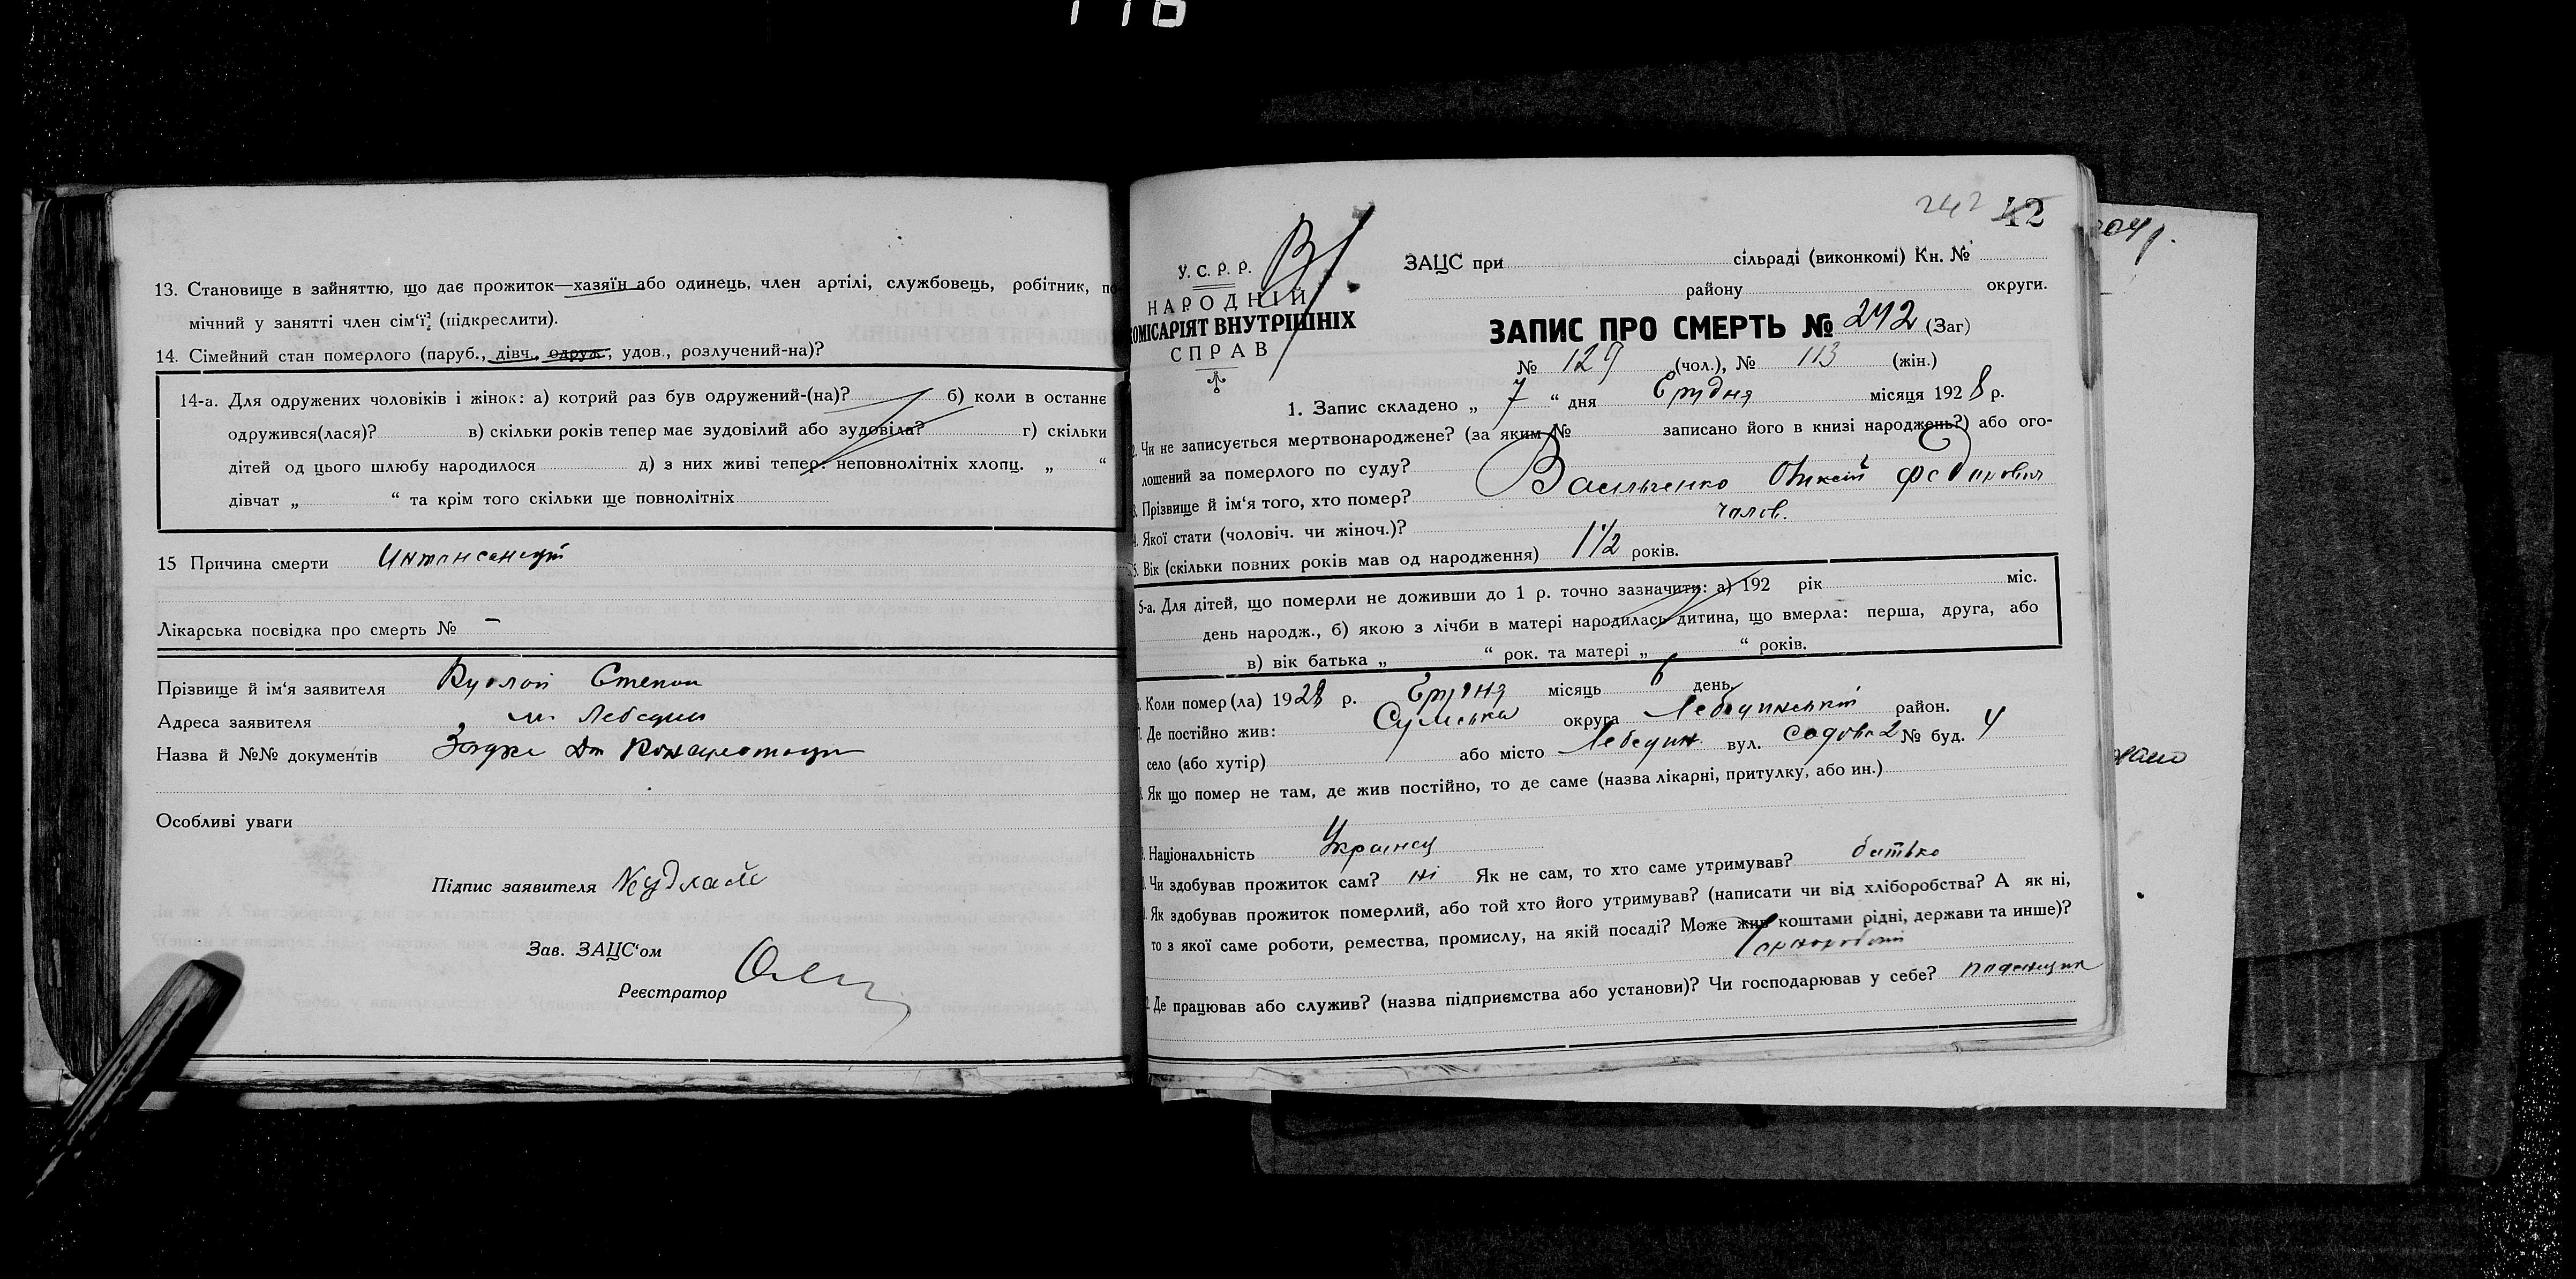 116
13. Становище в зайняттю, що дає прожиток—хазяїн або одинець, член артілі, службовець, робітник, по
мічний у занятті член сім'ї? (підкреслити).
14. Сімейний стан померлого (паруб., дівч., одруж., удов., розлучений-на)?
14-а. Для одружених чоловіків і жінок: а) котрий раз був одружений-(на)? б) коли в останнє
одружився(лася)? в) скільки років тепер має зудовілий або зудовіла? г) скільки
дітей од цього шлюбу народилося д) з них живі тепер: неповнолітніх хлопц. „ “
дівчат „ “ та крім того скільки ще повнолітніх
15 Причина смерти
Лікарська посвідка про смерть № —
Прізвище й ім'я заявителя Степан
Адреса заявителя м. Лебедин
Назва й №№ документів
Особливі уваги
Підпис заявителя Кудлай
Зав. ЗАЦС'ом
Реєстратор
242 42
У. С. Р. Р.
НАРОДНІЙ
КОМІСАРІЯТ ВНУТРІШНІХ
СПРАВ
ЗАЦС при сільраді (виконкомі) Кн. №
району округи.
ЗАПИС ПРО СМЕРТЬ № 242 (Заг)
№ 129 (чол.), № 113 (жін.)
1. Запис складено „ 7 “ дня Грудня місяця 1928 р.
2. Чи не записується мертвонароджене? (за яким № записано його в книзі народжень?) або ого-
лошений за померлого по суду?
3. Прізвище й ім'я того, хто помер? Васильченко Федорович
4. Якої стати (чоловіч. чи жіноч.)? чолов.
5. Вік (скільки повних років мав од народження) 1 1/2 років.
5-а. Для дітей, що померли не доживши до 1 р. точно зазначити: а) 192 рік міс.
день народж., б) якою з лічби в матері народилась дитина, що вмерла: перша, друга, або
в) вік батька „ “ рок. та матері „ “ років.
Коли помер(ла) 1928 р. Грудня місяць 6 день.
Де постійно жив: Сумська округа Лебединський район.
село (або хутір) або місто Лебедин вул. Садова 2 № буд. 4
Як що помер не там, де жив постійно, то де саме (назва лікарні, притулку, або ин.)
Національність Українец
Чи здобував прожиток сам? ні Як не сам, то хто саме утримував? батько
Як здобував прожиток померлий, або той хто його утримував? (написати чи від хліборобства? А як ні,
то з якої саме роботи, ремества, промислу, на якій посаді? Може жив коштами рідні, держави та инше)?
чорноробочий
Де працював або служив? (назва підприємства або установи)? Чи господарював у себе? поденщик